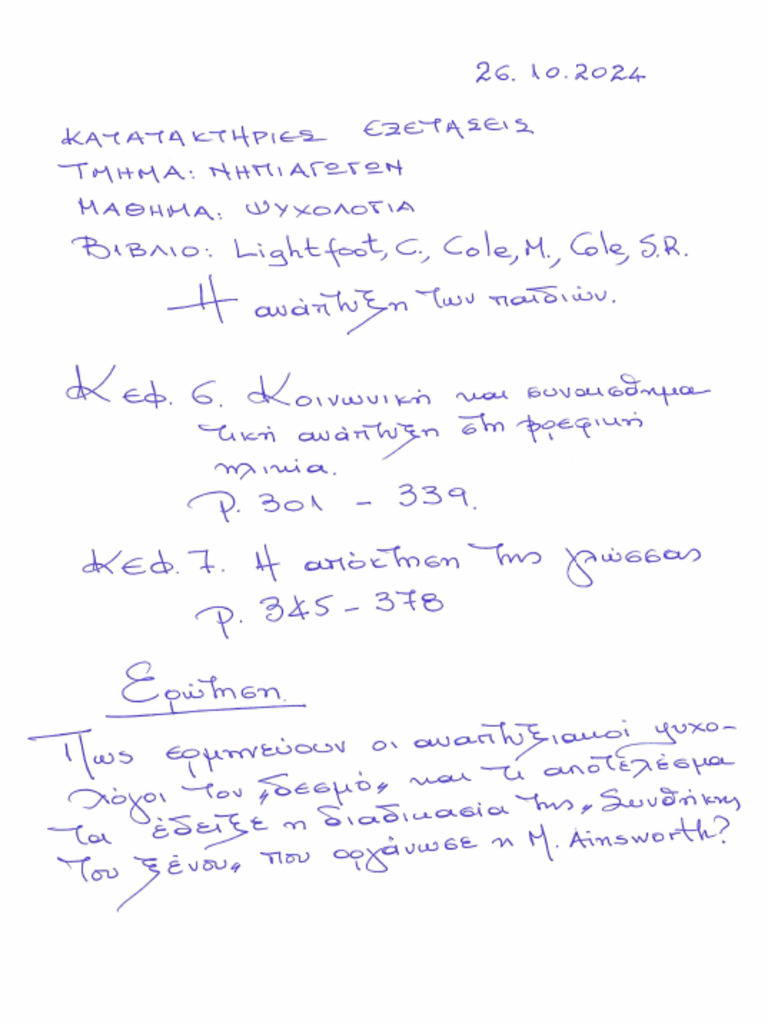 26.10.2024
ΚΑΤΑΤΑΚΤΗΡΙΕΣ ΕΞΕΤΑΣΕΙΣ
ΤΜΗΜΑ: ΝΗΠΙΑΓΩΓΩΝ
ΜΑΘΗΜΑ: ΨΥΧΟΛΟΓΙΑ
ΒΙΒΛΙΟ: Lightfoot, C., Cole, M., Cole, S.R.
Η ανάπτυξη των παιδιών.
Κεφ. 6. Κοινωνική και συναισθημα
τική ανάπτυξη στη βρεφική
ηλικία.
p. 301 - 339.
Κεφ. 7. Η απόκτηση της γλώσσας
p. 345 - 378
Ερώτηση
Πως ερμηνεύουν οι αναπτυξιακοί ψυχο-
λόγοι τον „δεσμό„ και τι αποτέλεσμα
τα έδειξε η διαδικασία της „Συνθήκης
του ξένου„ που οργάνωσε η M. Ainsworth?